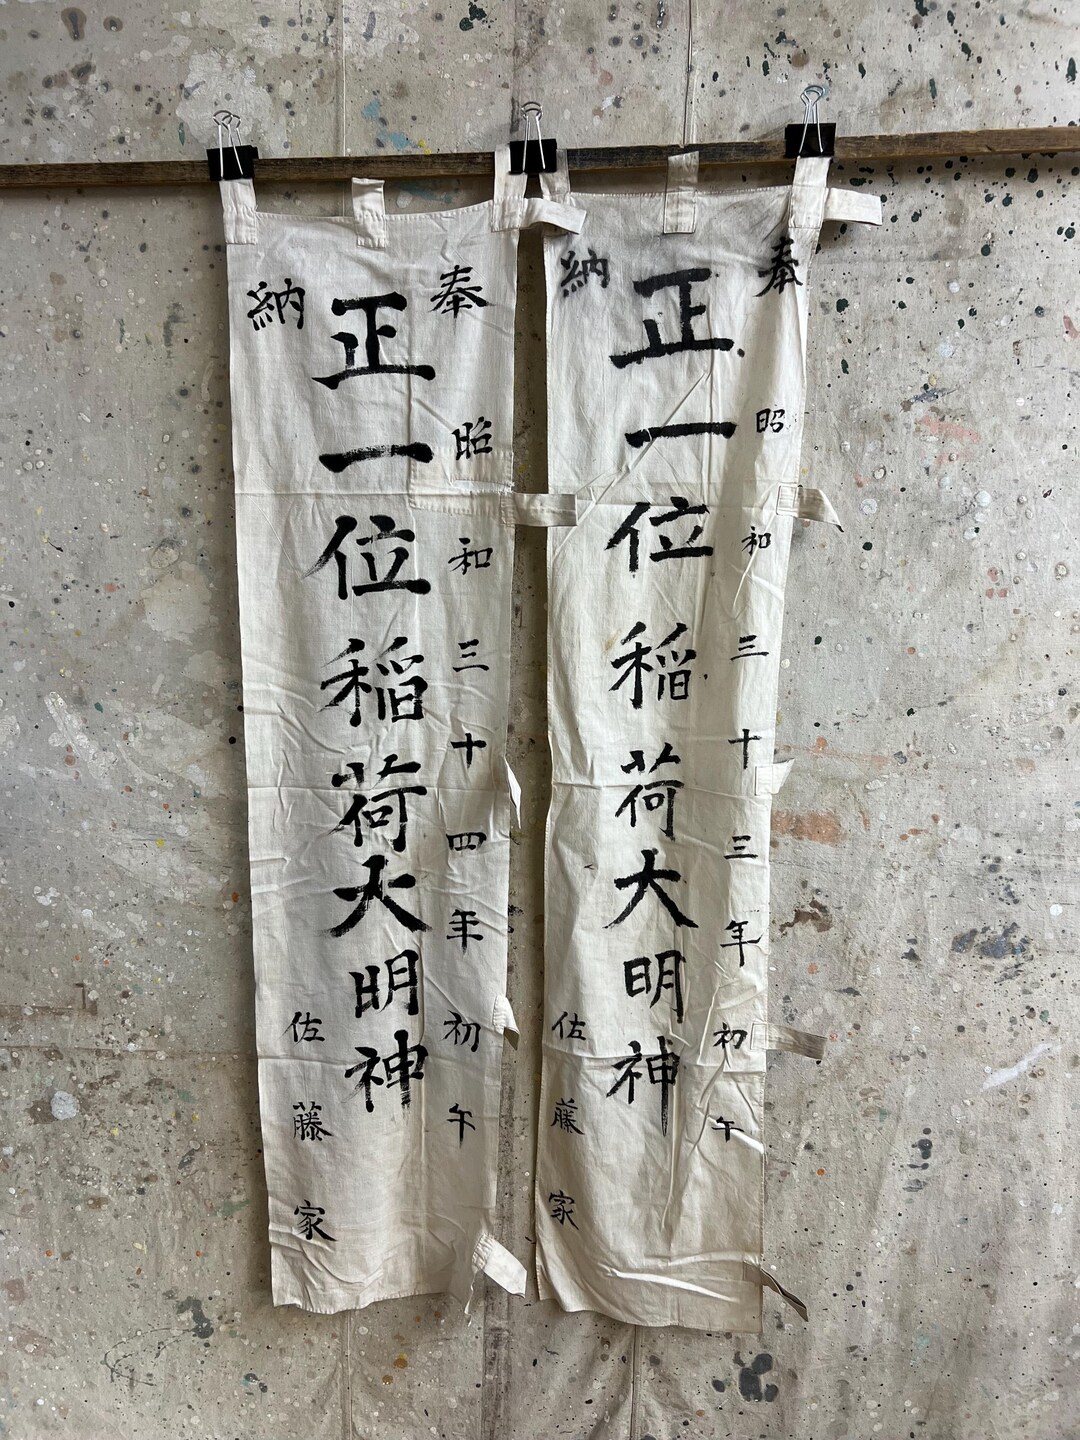 奉納
昭和三十三年初午
正一位稲荷大明神
佐藤家
奉納
昭和三十四年初午
正一位稲荷大明神
佐藤家